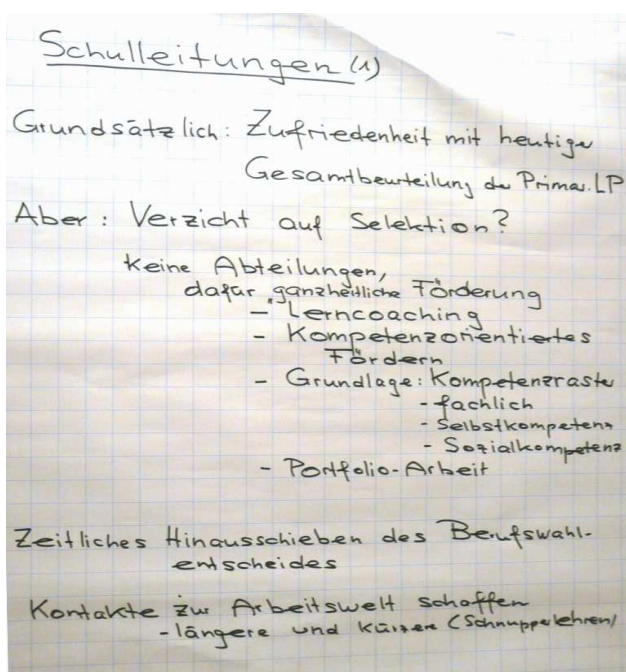 Schulleitungen (1)
Grundsätzlich: Zufriedenheit mit heutige
Gesamtbeurteilung der Primar.LP
Aber: Verzicht auf Selektion?
Keine Abteilungen,
dafür ganzheitliche Förderung
- Lerncoaching
- Kompetenzorientiertes
Fördern
- Grundlage: Kompetenzraste
- fachlich
- Selbstkompetenz
- Sozialkompetenz
- Portfolio-Arbeit
Zeitliches Hinausschieben des Berufswahl-
entscheides
Kontakte zur Arbeitswelt schaffen
- längere und kürzere (Schnupperlehren)